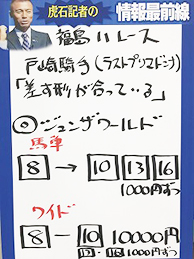 虎石記者の
情報最前線
福島11レース
戸崎騎手(ラストプリマドンナ)
「差す形が合っている」
◎ジュンザワールド
馬単
8→10 13 16
1000円ずつ
ワイド
8-10 10000円
13・16 1000円ずつ